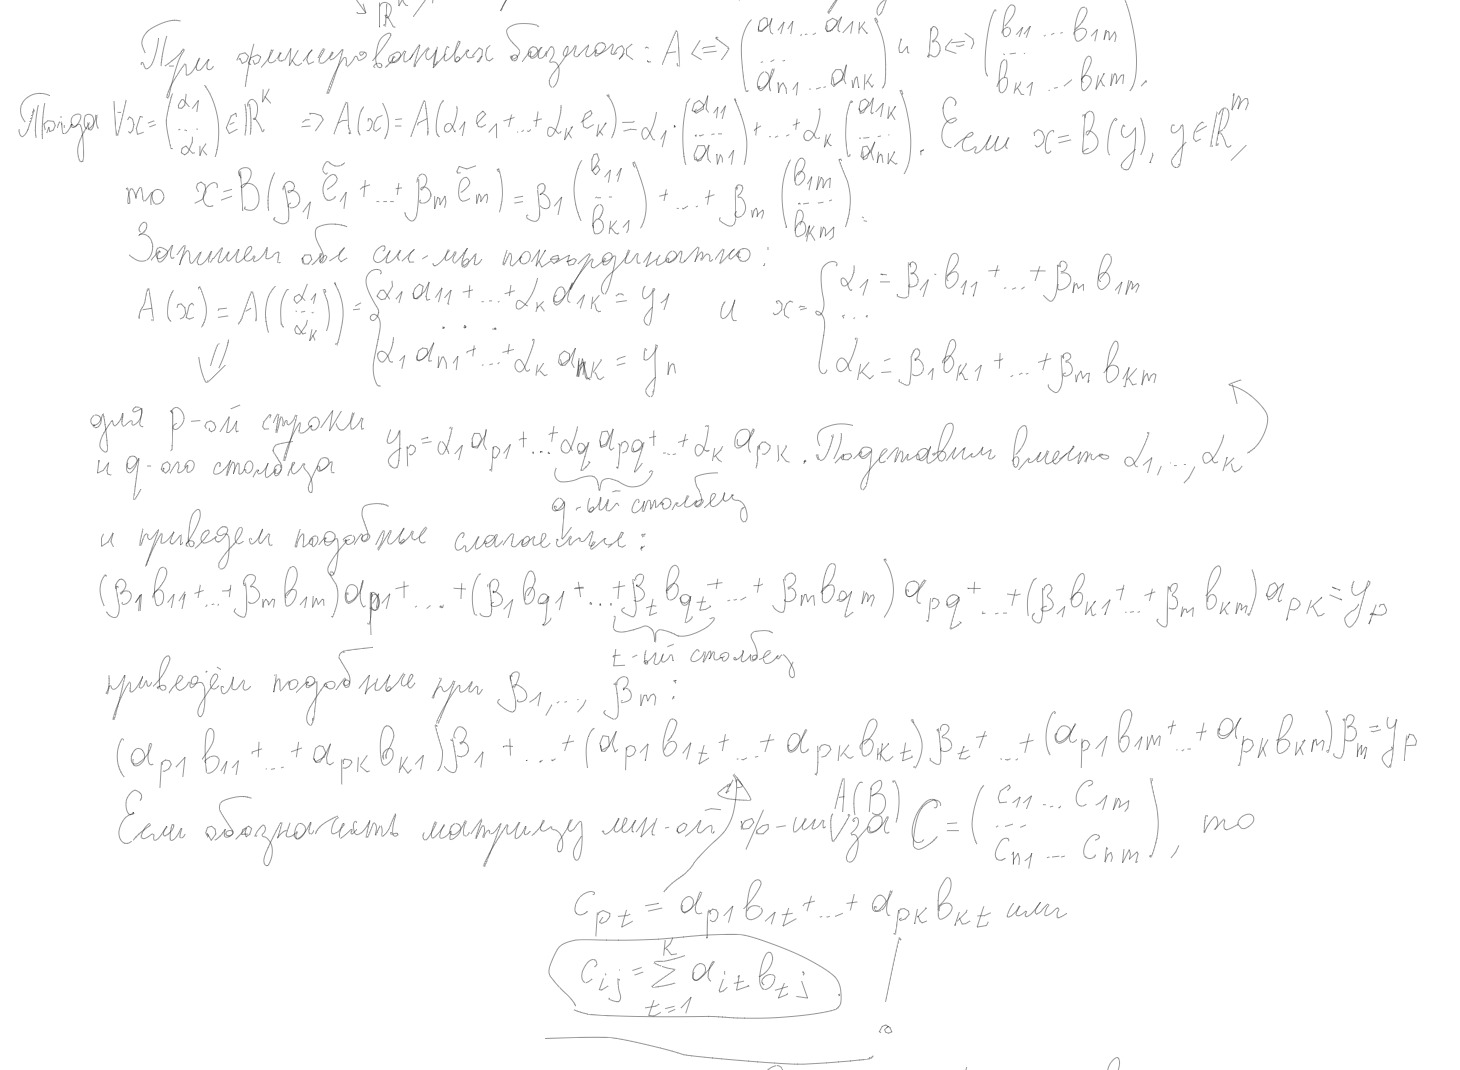 ℝᵏ,
При фиксированных базисах: A <=> (a₁₁ ... a₁ₖ ... aₙ₁ ... aₙₖ) и B <=> (b₁₁ ... b₁ₘ ... bₖ₁ ... bₖₘ).
Тогда ∀x = (α₁ ... αₖ) ∈ ℝᵏ => A(x) = A(α₁e₁ + ... + αₖeₖ) = α₁·(a₁₁ ... aₙ₁) + ... + αₖ(a₁ₖ ... aₙₖ). Если x = B(y), y ∈ ℝᵐ,
то x = B(β₁ẽ₁ + ... + βₘẽₘ) = β₁(b₁₁ ... bₖ₁) + ... + βₘ(b₁ₘ ... bₖₘ).
Запишем обе сис-мы покоординатно:
A(x) = A((α₁ ... αₖ)) = { α₁a₁₁ + ... + αₖa₁ₖ = y₁ ... α₁aₙ₁ + ... + αₖaₙₖ = yₙ и x = { α₁ = β₁·b₁₁ + ... + βₘb₁ₘ ... αₖ = β₁bₖ₁ + ... + βₘbₖₘ
⇓
для p-ой строки
и q-ого столбца
y_p = α₁a_p1 + ... + α_q a_pq + ... + αₖa_pk. Подставим вместо α₁, .., αₖ
q-ый столбец
и приведем подобные слагаемые:
(β₁b₁₁ + ... + βₘb₁ₘ)a_p1 + ... + (β₁b_q1 + ... + β_t b_qt + ... + βₘb_qm)a_pq + ... + (β₁bₖ₁ + ... + βₘbₖₘ)a_pk = y_p
t-ый столбец
приведём подобные при β₁, .., βₘ:
(a_p1 b₁₁ + ... + a_pk bₖ₁)β₁ + ... + (a_p1 b_1t + ... + a_pk b_kt)β_t + ... + (a_p1 b₁ₘ + ... + a_pk bₖₘ)βₘ = y_p
Если обозначить матрицу лин-ой ф-ии A(B) за C = (c₁₁ ... c₁ₘ ... cₙ₁ ... cₙₘ), то
c_pt = a_p1 b_1t + ... + a_pk b_kt или
c_ij = ∑_{t=1}^{k} a_it b_tj